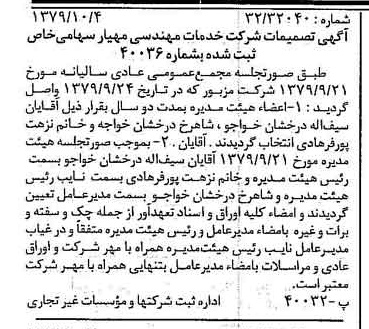 شماره: ۳۲/۳۲۰۴۰ ۱۳۷۹/۱۰/۴
آگهی تصمیمات شرکت خدمات مهندسی مهیار سهامی‌خاص
ثبت شده بشماره ۴۰۰۳۶
طبق صورتجلسه مجمع‌عمومی عادی سالیانه مورخ
۱۳۷۹/۹/۲۱ شرکت مزبور که در تاریخ ۱۳۷۹/۹/۲۴ واصل
گردید : ۱-اعضاء هیئت مدیره بمدت دو سال بقرار ذیل آقایان
سیف‌اله درخشان خواجو ، شاهرخ درخشان خواجه و خانم نزهت
پورفرهادی انتخاب گردیدند . آقایان . ۲- بموجب صورتجلسه هیئت
مدیره مورخ ۱۳۷۹/۹/۲۱ آقایان سیف‌اله درخشان خواجو بسمت
رئیس هیئت مدیره و خانم نزهت پورفرهادی بسمت نایب رئیس
هیئت مدیره و شاهرخ درخشان خواجو بسمت مدیرعامل تعیین
گردیدند و امضاء کلیه اوراق و اسناد تعهدآور از جمله چک و سفته و
برات و غیره بامضاء مدیرعامل و رئیس هیئت مدیره متفقاً و در غیاب
مدیرعامل نایب رئیس هیئت‌مدیره همراه با مهر شرکت و اوراق
عادی و مراسلات بامضاء مدیرعامل بتنهایی همراه با مهر شرکت
معتبر است.
پ-۴۰۰۳۲ اداره ثبت شرکتها و مؤسسات غیر تجاری